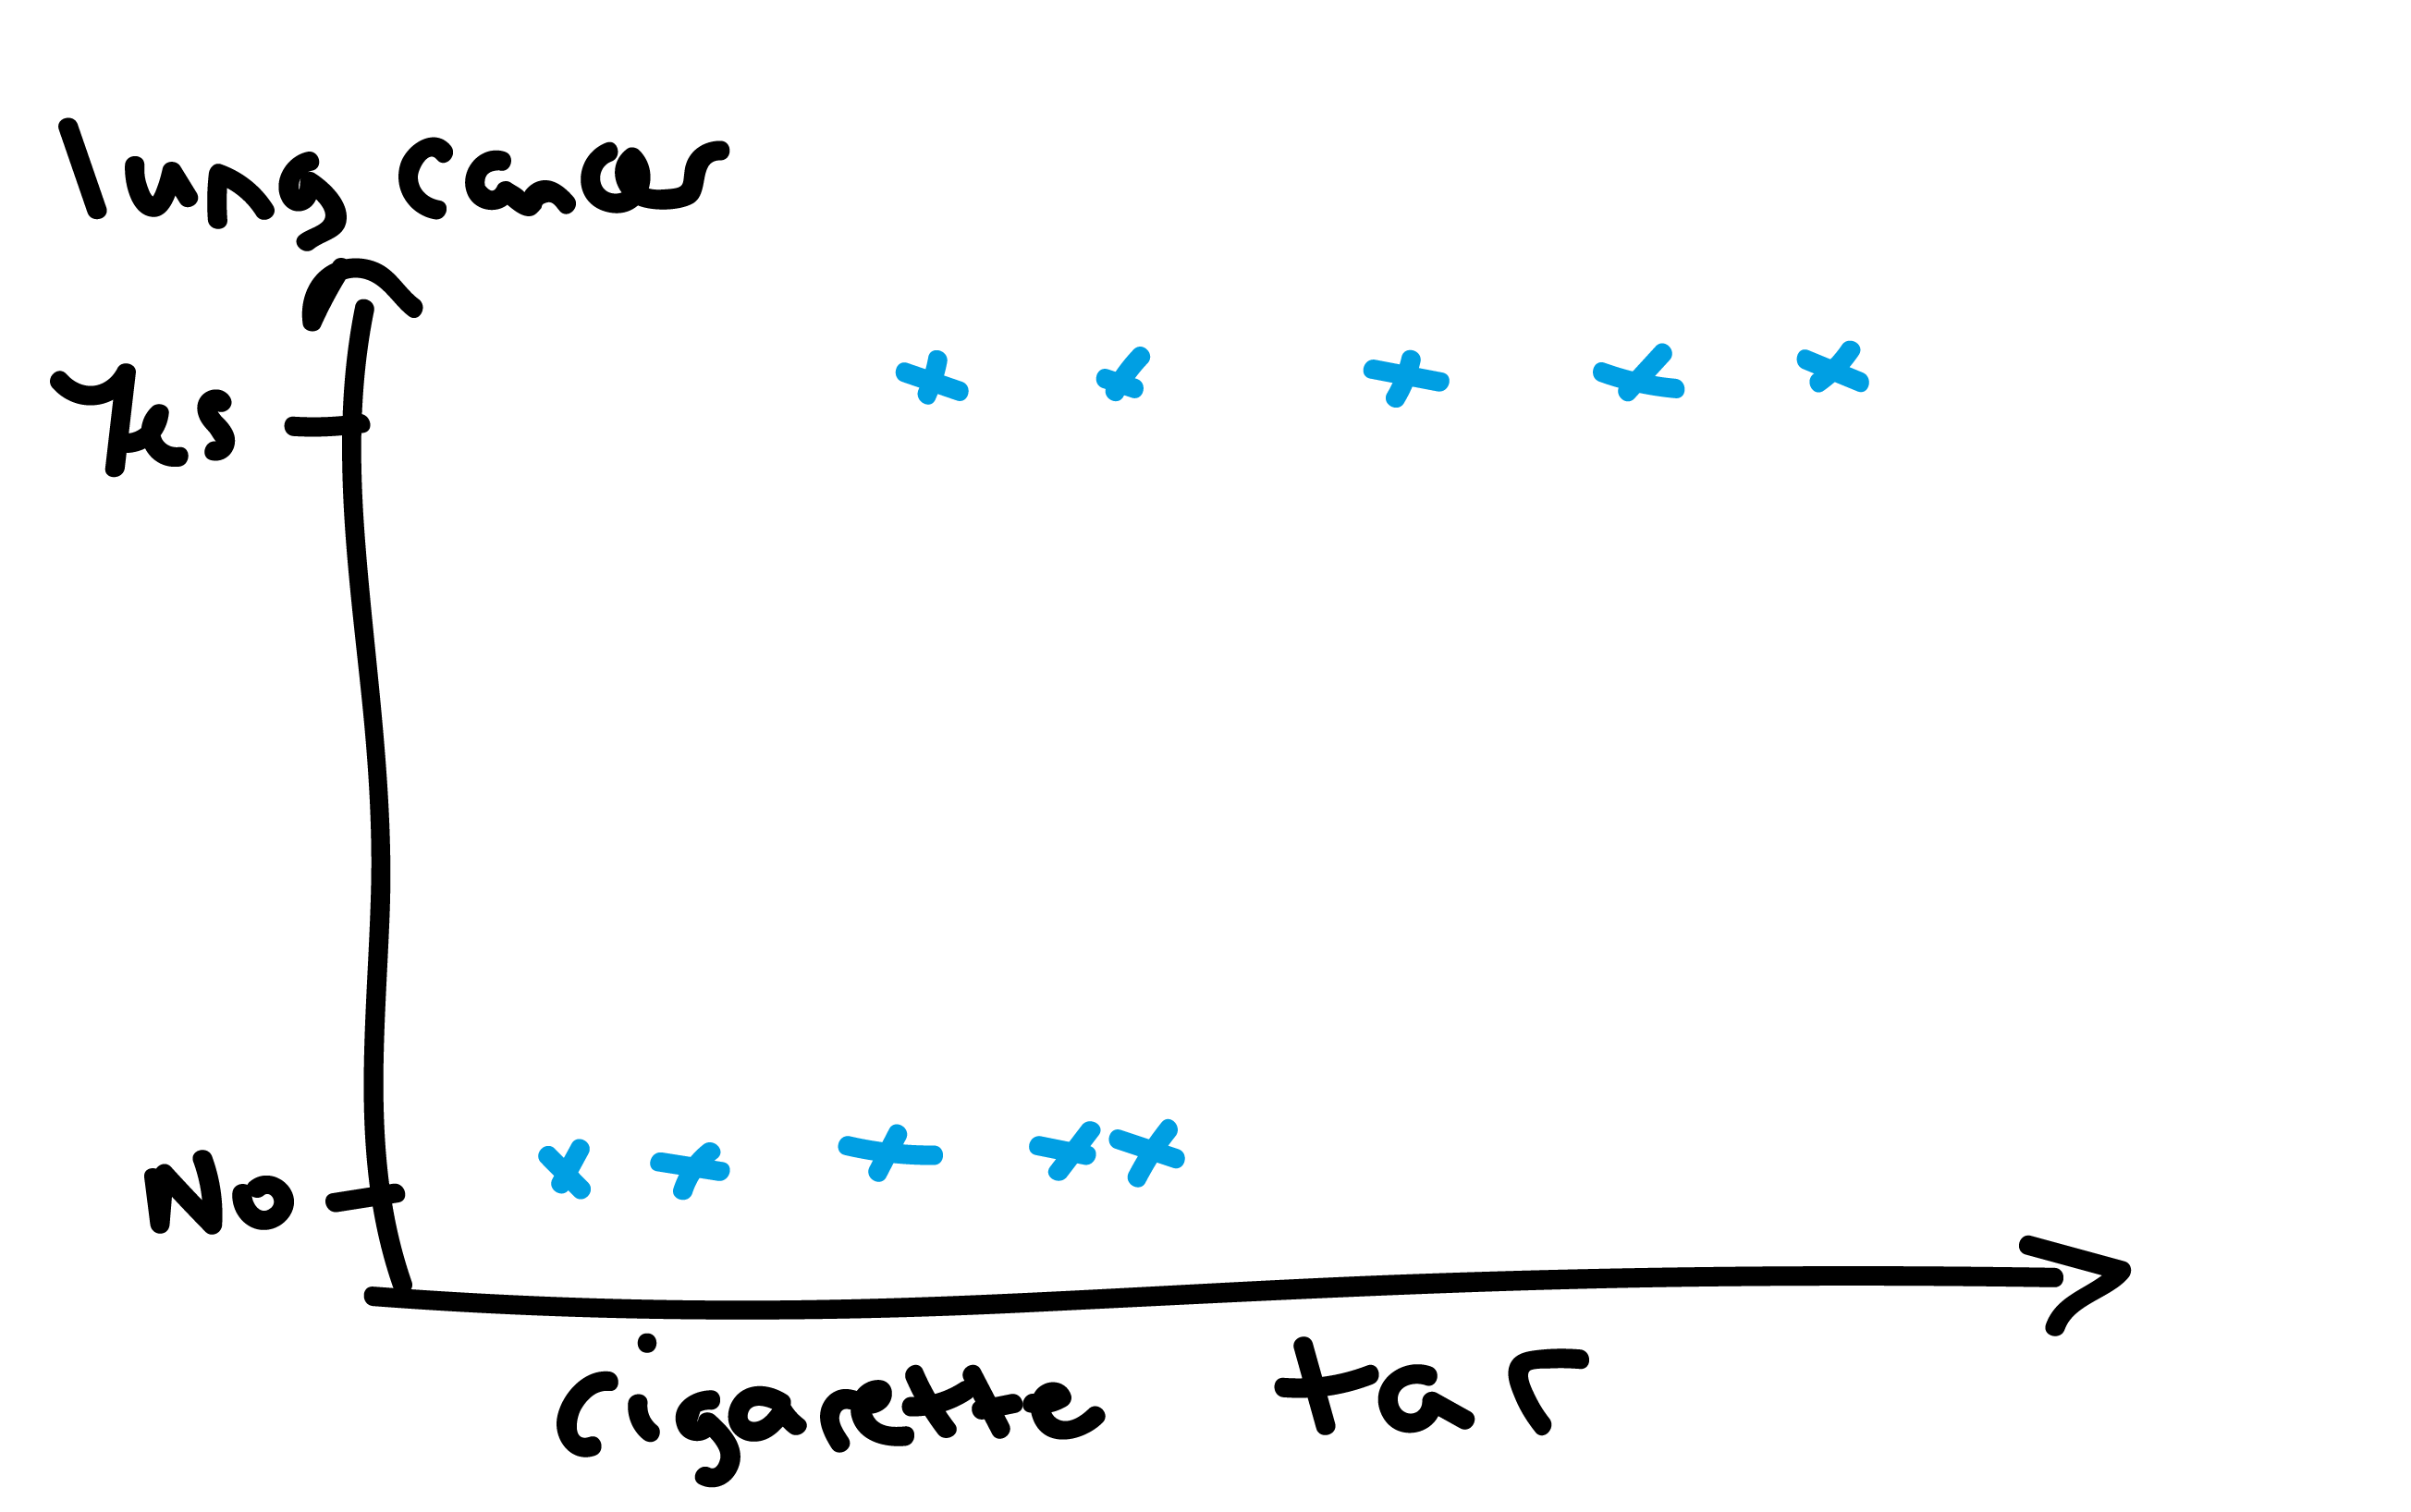 lung cancer
Yes
No
cigarette tar